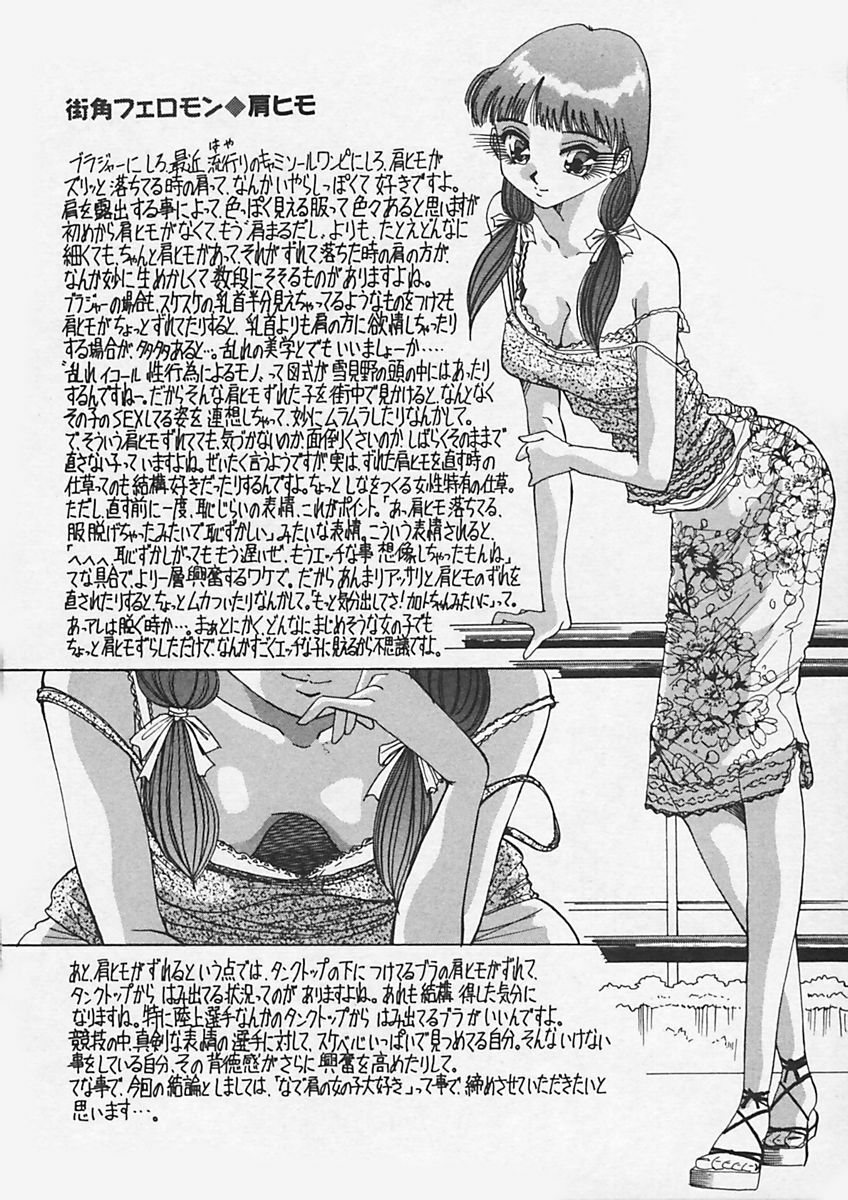 街角フェロモン◆肩ヒモ
ブラジャーにしろ、最近流行りのキャミソールワンピにしろ、肩ヒモが
はや
ズリッと落ちてる時の肩って、なんかいやらしっぽくて好きですよ。
肩を露出する事によって、色っぽく見える服って色々あると思いますが
初めから肩ヒモがなくて、もう"肩まるだし"よりも、たとえどんなに
細くても、ちゃんと肩ヒモがあって、それがずれて落ちた時の肩の方が、
なんか妙に生めかしくて数段にそそるものがありますよね。
ブラジャーの場合も、スケスケの乳首半分見えちゃってるようなものをつけても
肩ヒモがちょっとずれてたりすると、乳首よりも肩の方に欲情しちゃったり
する場合が多々あると…。乱れの美学とでもいいましょーか‥‥
"乱れイコール性行為によるモノ"って図式が雪見野の頭の中にはあったり
するんですねー。だからそんな肩ヒモずれた子を街中で見かけると、なんとなく
その子のSEXしてる姿を連想しちゃって、妙にムラムラしたりなんかして。
で、そういう肩ヒモずれてても、気づかないのか、面倒りくさいのか、しばらくそのままで
直さない子っていますよね。ぜいたく言うようですが実は、ずれた肩ヒモを直す時の
仕草ってのも結構好きだったりするんですよ。ちょっとしなをつくる女性特有の仕草。
ただし、直す前に一度、恥じらいの表情、これがポイント。「あっ、肩ヒモ落ちてる、
服脱げちゃったみたいで恥ずかしい」みたいな表情。こういう表情されると、
「へへへ、恥ずかしがってももう遅いぜ、もうエッチな事想像しちゃったもんね」
てな具合でより一層興奮するワケで。だからあんまりアッサリと肩ヒモのずれを
直されたりすると、ちょっとムカついたりなんかして。"もっと気分出してさ!加トちゃんみたいに"って。
あーアレは脱ぐ時か…。まぁとにかくどんなにまじめそうな女の子でも
ちょっと肩ヒモずらしただけで、なんかすごくエッチな子に見えるから不思議ですよ。
あと、肩ヒモがずれるという点では、タンクトップの下につけてるブラの肩ヒモがずれて、
タンクトップからはみ出てる状況ってのがありますよね。あれも結構得した気分に
なりますね。特に陸上選手なんかのタンクトップからはみ出てるブラがいいんですよ。
競技の中、真剣な表情の選手に対して、スケベ心いっぱいで見つめてる自分。そんないけない
事をしている自分、その背徳感がさらに興奮を高めたりして。
てな事で、今回の結論としましては、「なで肩の女の子大好き」って事で、締めさせていただきたいと
思います…。